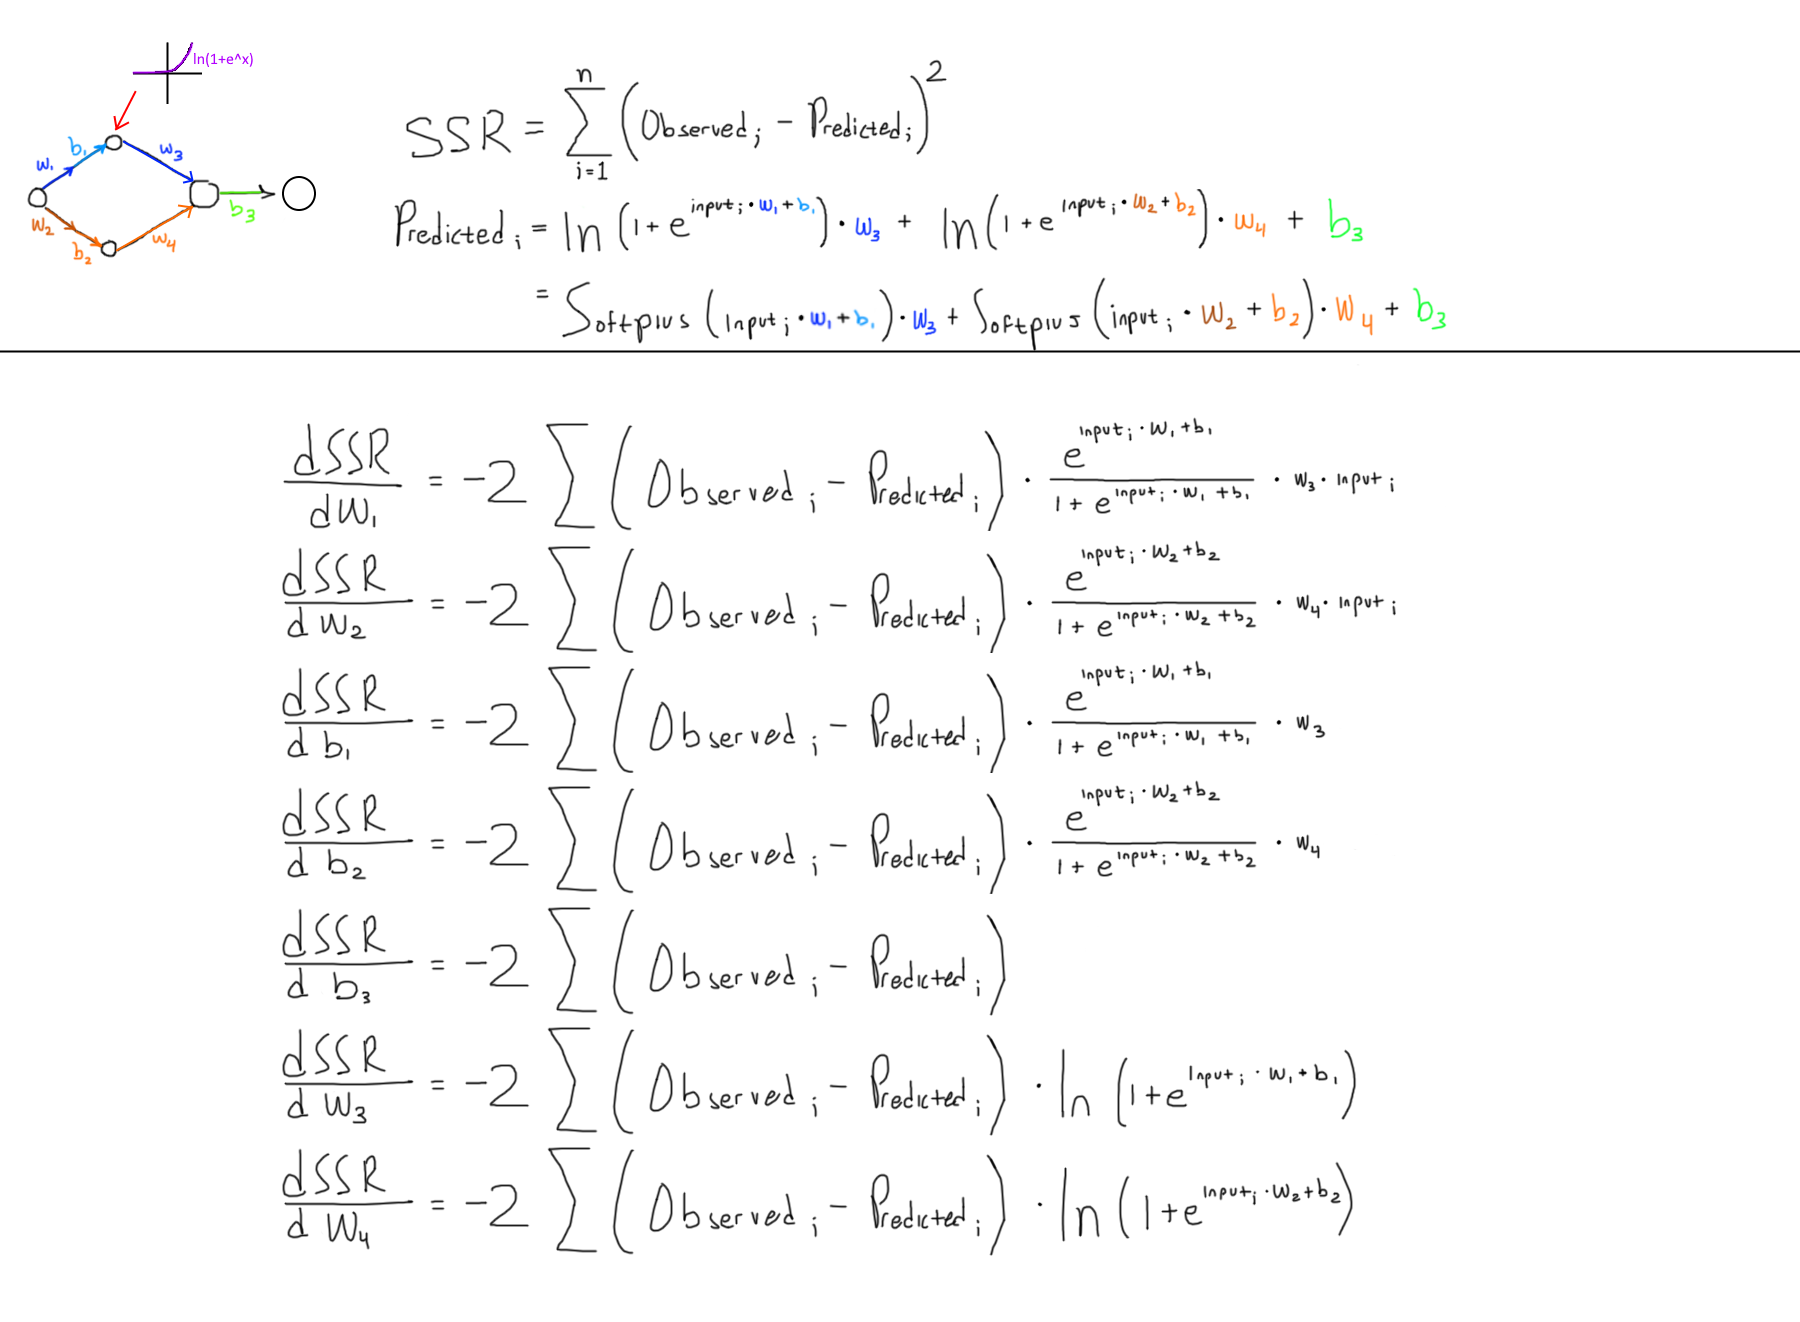 ln(1+e^x)
w₁ b₁ w₃
w₂ b₂ w₄ b₃
SSR = ∑_{i=1}^{n} (Observedᵢ - Predictedᵢ)²
Predictedᵢ = ln(1 + e^{inputᵢ · w₁ + b₁}) · w₃ + ln(1 + e^{inputᵢ · w₂ + b₂}) · w₄ + b₃
= Softplus(inputᵢ · w₁ + b₁) · w₃ + Softplus(inputᵢ · w₂ + b₂) · w₄ + b₃
dSSR/dw₁ = -2 ∑(Observedᵢ - Predictedᵢ) · e^{inputᵢ · w₁ + b₁}/(1 + e^{inputᵢ · w₁ + b₁}) · w₃ · inputᵢ
dSSR/dw₂ = -2 ∑(Observedᵢ - Predictedᵢ) · e^{inputᵢ · w₂ + b₂}/(1 + e^{inputᵢ · w₂ + b₂}) · w₄ · inputᵢ
dSSR/db₁ = -2 ∑(Observedᵢ - Predictedᵢ) · e^{inputᵢ · w₁ + b₁}/(1 + e^{inputᵢ · w₁ + b₁}) · w₃
dSSR/db₂ = -2 ∑(Observedᵢ - Predictedᵢ) · e^{inputᵢ · w₂ + b₂}/(1 + e^{inputᵢ · w₂ + b₂}) · w₄
dSSR/db₃ = -2 ∑(Observedᵢ - Predictedᵢ)
dSSR/dw₃ = -2 ∑(Observedᵢ - Predictedᵢ) · ln(1 + e^{inputᵢ · w₁ + b₁})
dSSR/dw₄ = -2 ∑(Observedᵢ - Predictedᵢ) · ln(1 + e^{inputᵢ · w₂ + b₂})